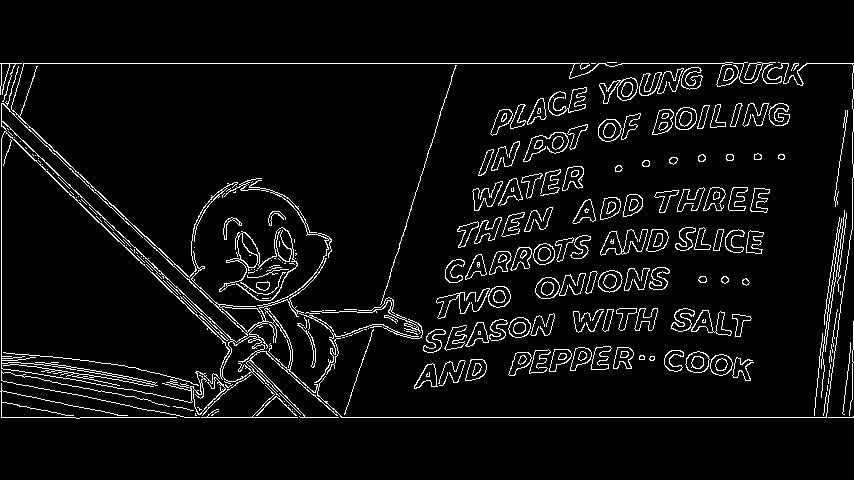 PLACE YOUNG DUCK
IN POT OF BOILING
WATER . . . . . . .
THEN ADD THREE
CARROTS AND SLICE
TWO ONIONS . . .
SEASON WITH SALT
AND PEPPER.. COOK